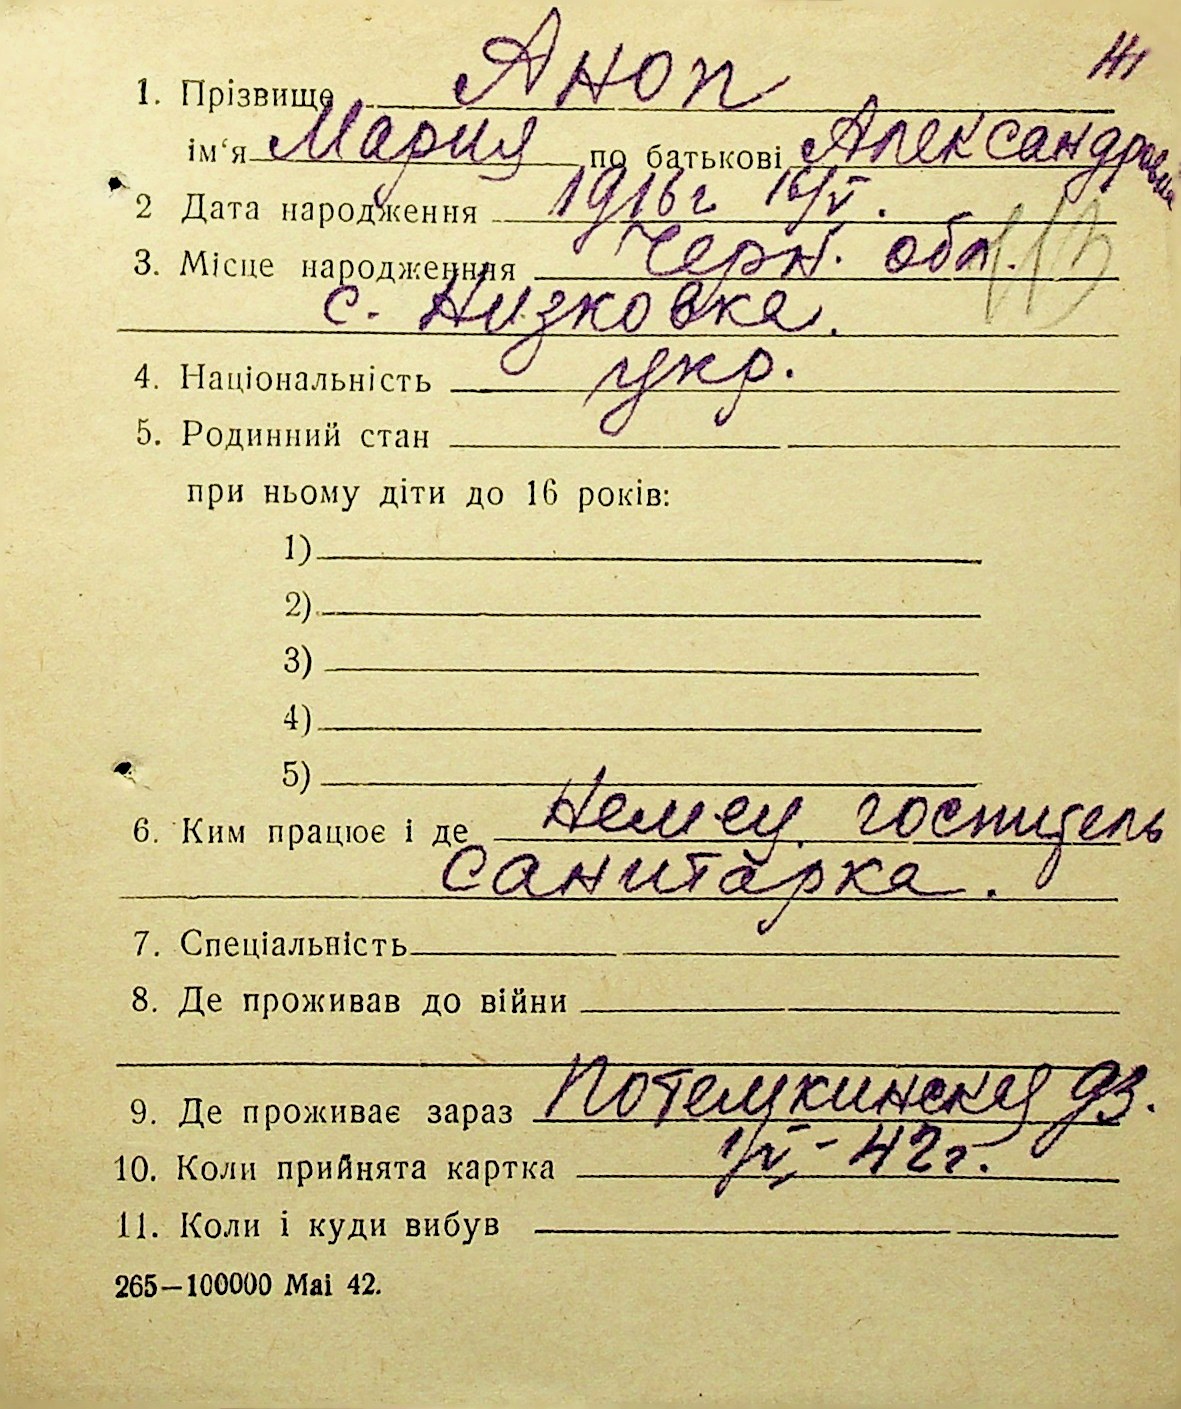 1. Прізвище Аноп
ім‘я Мария по батькові Александровна
2 Дата народження 1916г 16/V.
3. Місце народженння Черн. обл.
с. Низковка.
4. Національність укр.
5. Родинний стан
при ньому діти до 16 років:
1)
2)
3)
4)
5)
6. Ким працює і де Немец. госпиталь
санитарка.
7. Спеціальність
8. Де проживав до війни
9. Де проживає зараз Потемкинская 93.
10. Коли прийнята картка 42г.
11. Коли і куди вибув
265—100000 Mai 42.